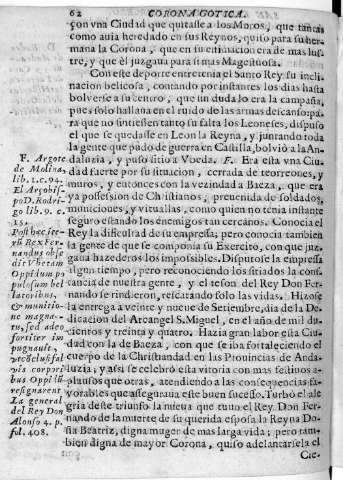 62 CORONA GOTICA.
con vna Ciudad que quitasse a los Moros, que tantas
como auia heredado en sus Reynos, quiso para su her-
mana la Corona, que en su estimacion era de mas lus-
tre, y que èl juzgaua para si mas Magestuosa.
Con este deporte entretenia el Santo Rey su incli-
nacion belicosa, contando por instantes los dias hasta
bolverse a su centro, que sin duda lo era la campaña,
pues solo hallaua en el ruido de las armas descanso: pa-
ra que no sintiessen tanto su falta los Leoneses, dispuso
el que se quedasse en Leon la Reyna, y juntando toda
la gente que pudo de guerra en Castilla, bolviò a la An-
daluzia, y puso sitio a Vbeda. F. Era esta vna Ciu-
dad fuerte por su situacion, cerrada de torreones, y
muros, y entonces con la vezindad a Baeza, que era
ya possession de Christianos, preuenida de soldados,
municiones, y vituallas, como quien no tenia instante
seguro estando los enemigos tan cercanos. Conocia el
Rey la dificultad de su empressa; pero conocia tambien
la gente de que se componia su Exercito, con que juz-
gaua hazederos los impossibles. Disputose la empressa
algun tiempo, pero reconociendo los sitiados la cons-
tancia de nuestra gente, y el teson del Rey Don Fer-
nando se rindieron, rescatando solo las vidas. Hizose
la entrega à veinte y nueue de Setiembre, dia de la De-
dicacion del Arcangel S. Miguel, en el año de mil du-
cientos y treinta y quatro. Hazia gran labor esta Ciu-
dad con la de Baeza, con que se iba fortaleciendo el
cuerpo de la Christiandad en las Prouincias de Anda-
luzia; y assi se celebrò esta vitoria con mas festiuos a-
plausos que otras, atendiendo a las consequencias fa-
vorables que asseguraua este buen sucesso. Turbò el ale
gria deste triunfo la nueua que tuuo el Rey Don Fer-
nando de la muerte de su querida esposa la Reyna Do-
ña Beatriz, digna muger de mas larga vida; pero tam-
bien digna de mayor Corona, quiso adelantarsela el
Cie-
F. Argote
de Molina,
lib. 1. c. 94.
El Arçobis-
po D. Rodri-
go lib. 9. c.
15.
Post hæc ser-
vũ Rex Fer-
nandus obse
dit Vbetam
Oppidum po
pulosum bel
latoribus,
& munitio-
ne magna-
tus, sed adeo
fortiter im
pugnauit,
vt esclusi sal
vis corpori
bus Oppi ilũ
resignarent
La general
del Rey Don
Alonso 4. p.
fol. 408.